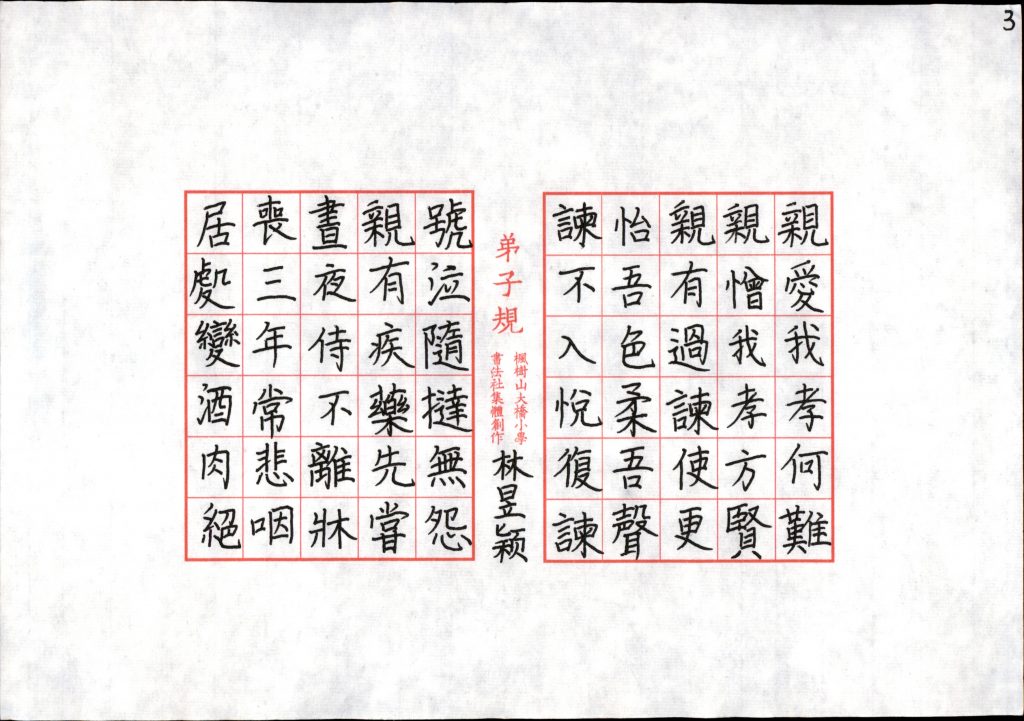 3
親愛我孝何難
親憎我孝方賢
親有過諫使更
怡吾色柔吾聲
諫不入悅復諫
弟子規
楓樹山大橋小學
書法社集體創作
林昱颖
號泣隨撻無怨
親有疾藥先嘗
晝夜侍不離牀
喪三年常悲咽
居處變酒肉絕